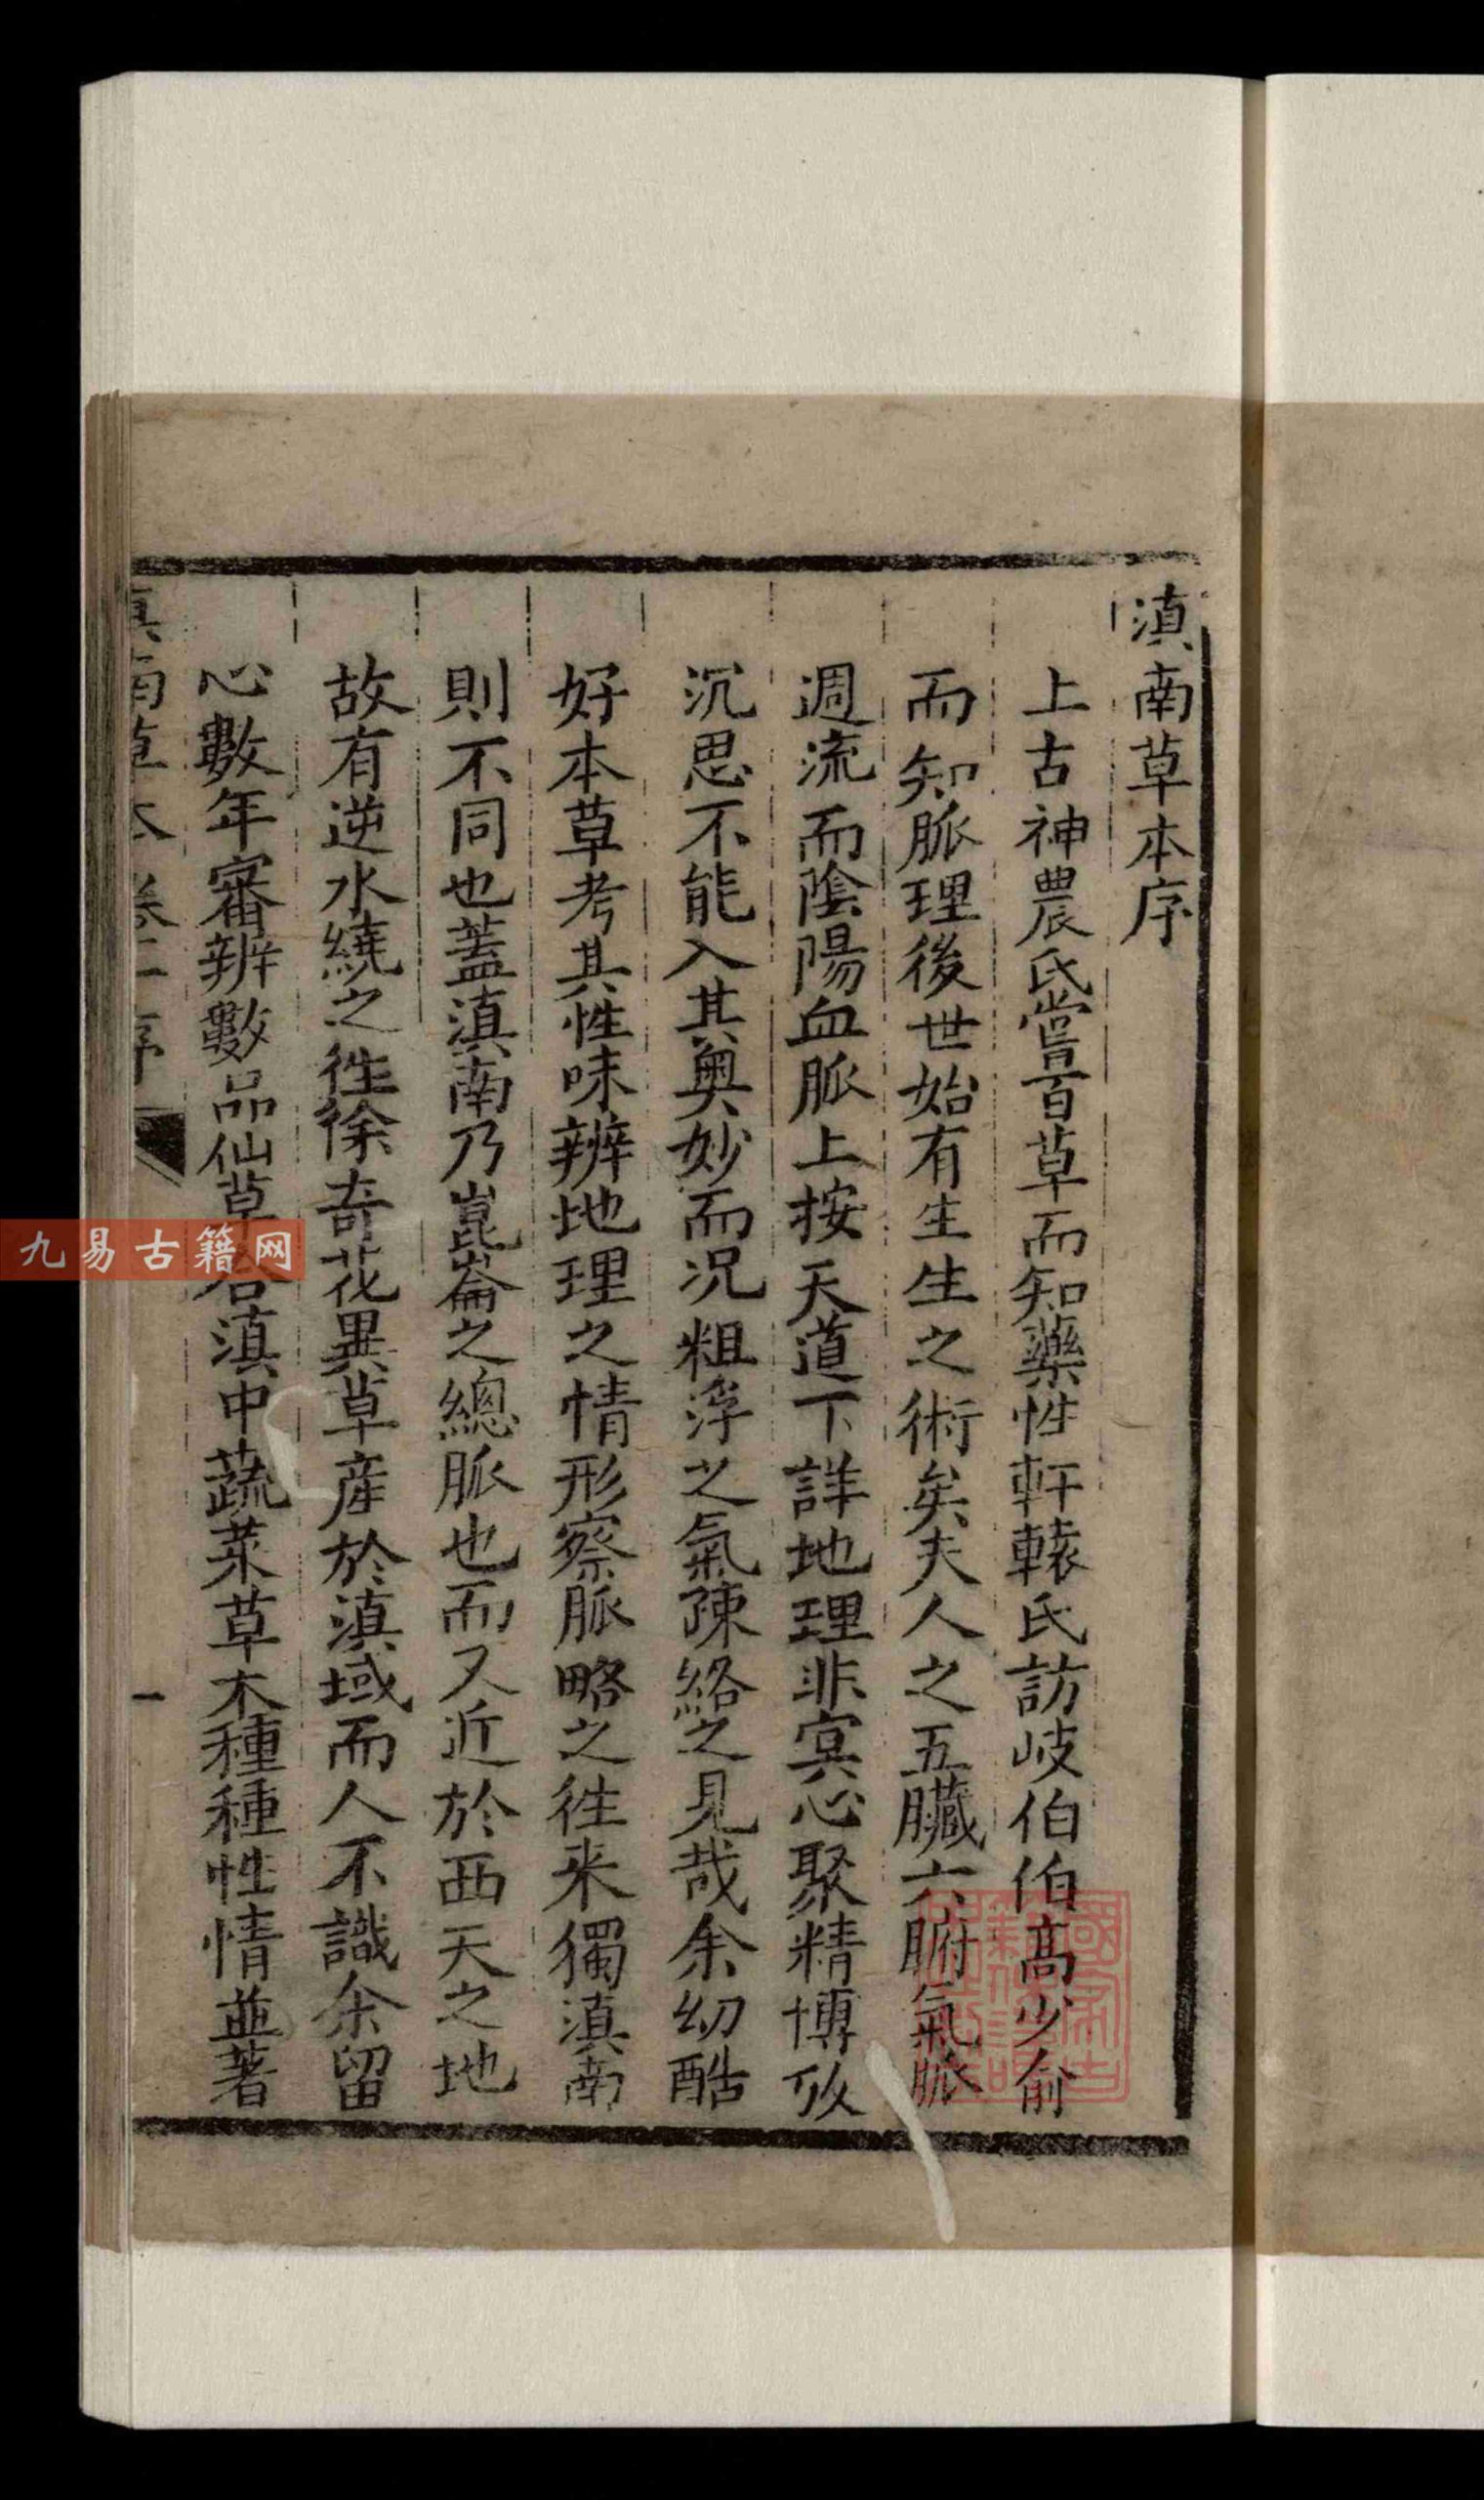 滇南草本序
上古神農氏嘗百草而知藥性軒轅氏訪岐伯伯高少俞
而知脈理後世始有生生之術矣夫人之五臟六腑氣脈
週流而陰陽血脈上按天道下詳地理非冥心聚精博攷
沉思不能入其奧妙而况粗浮之氣疎絡之見哉余幼酷
好本草考其性味辨地理之情形察脈略之徃来獨滇南
則不同也蓋滇南乃崑崙之總脈也而又近於西天之地
故有逆水繞之徃徐奇花異草産於滇域而人不識余留
心數年審辨數品仙草合滇中蔬菜草木種種性情並著
滇南草本 卷二序
一
九易古籍网